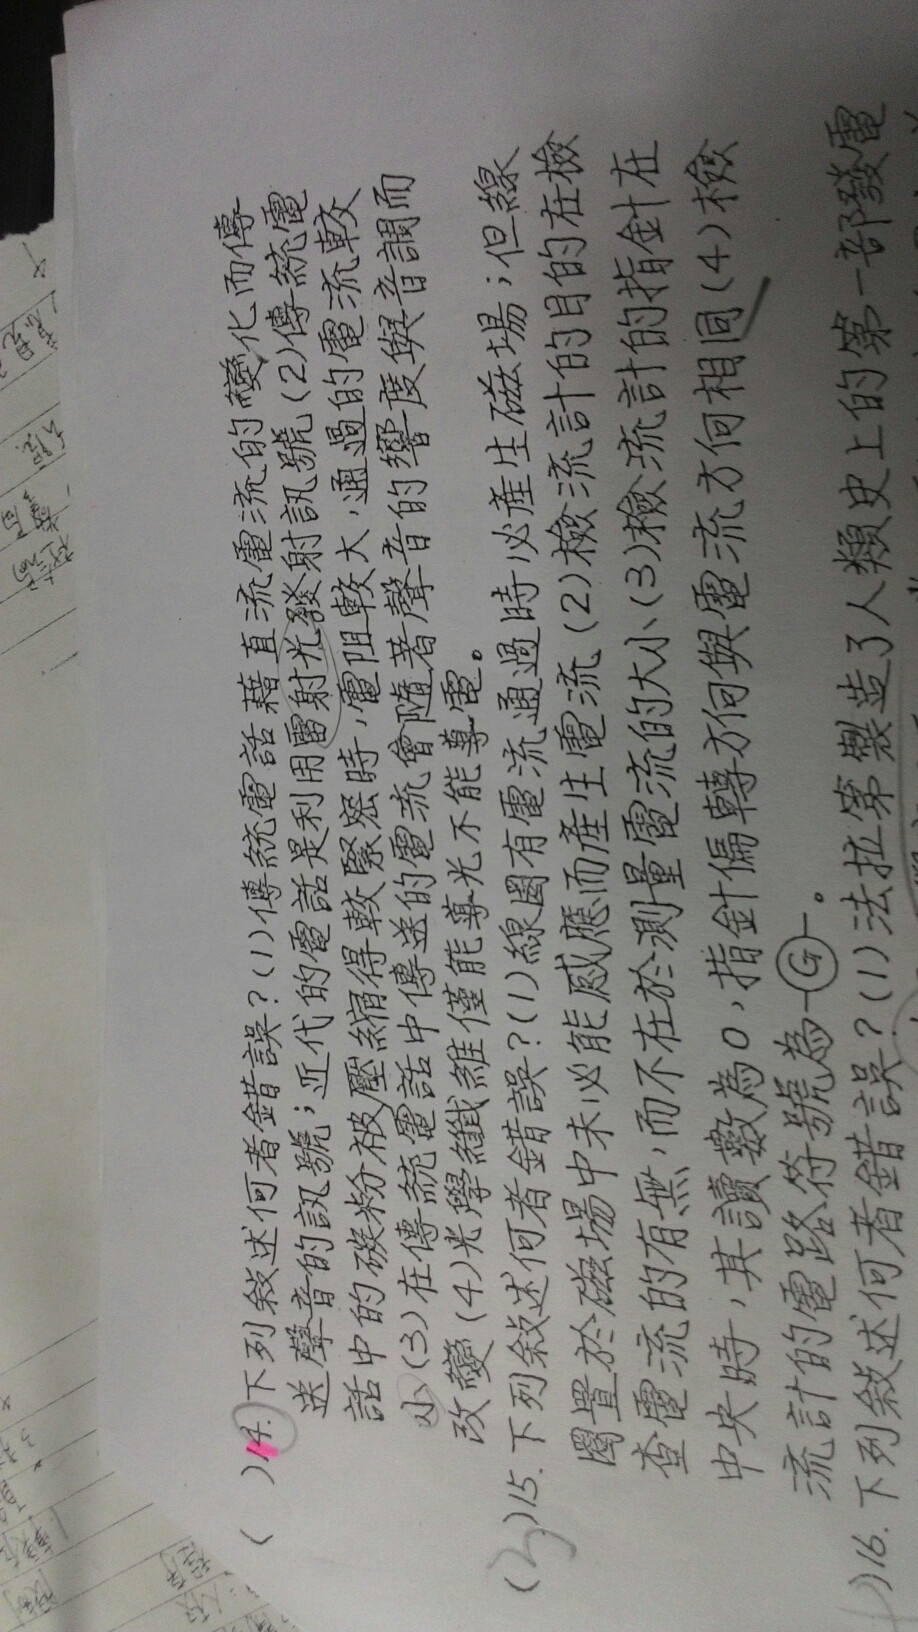 ( )14.下列敘述何者錯誤?(1)傳統電話藉直流電流的變化而傳
送聲音的訊號;近代的電話是利用雷射光發射訊號(2)傳統電
話中的碳粉被壓縮得較緊密時,電阻較大,通過的電流較
小(3)在傳統電話中傳送的電流會隨著聲音的響度與音調而
改變(4)光學纖維僅能導光不能導電。
( )15.下列敘述何者錯誤?(1)線圈有電流通過時必產生磁場;但線
圈置於磁場中未必能感應而產生電流(2)檢流計的目的在檢
查電流的有無,而不在於測量電流的大小(3)檢流計的指針在
中央時,其讀數為0,指針偏轉方向與電流方向相同(4)檢
流計的電路符號為-G-。
)16.下列敘述何者錯誤?(1)法拉第製造了人類史上的第一部發電